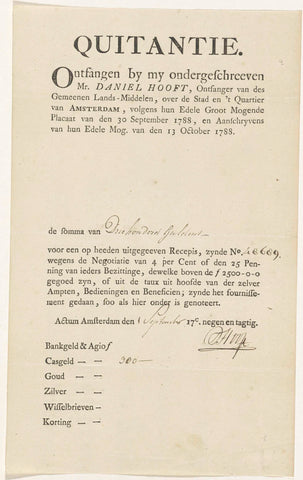 QUITANTIE.
Ontfangen by my ondergeschreeven
Mr. DANIEL HOOFT, Ontfanger van des
Gemeenen Lands-Middelen, over de Stad en 't Quartier
van AMSTERDAM, volgens hun Edele Groot Mogende
Placaat van den 30 September 1788, en Aanschryvens
van hun Edele Mog. van den 13 October 1788.
de somma van Driehonderd Guldens
voor een op heeden uitgegeeven Recepis, zynde No.
wegens de Negotiatie van 4 per Cent of den 25 Pen-
ning van ieders Bezittinge, dewelke boven de ƒ 2500-0-0
gegoed zyn, of uit de taux uit hoofde van der zelver
Ampten, Bedieningen en Beneficien; zynde het fournisse-
ment gedaan, soo als hier onder is genoteert.
Actum Amsterdam den 1 September 17c. negen en tagtig.
DHooft
Bankgeld & Agio ƒ
Casgeld — — 300 —
Goud — —
Zilver — —
Wisselbrieven —
Korting — —